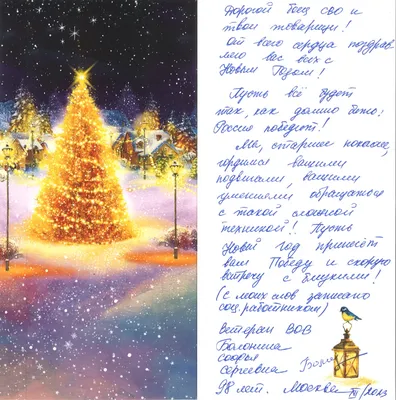 Дорогой боец СВО и
твои товарищи!
От всего сердца поздрав
ляю вас всех с
Новым Годом!
Пусть всё будет
так, как должно быть:
Россия победит!
Мы, старшее поколение,
гордимся вашими
подвигами, вашими
умениями обращаться
с такой сложной
техникой! Пусть
Новый год принесёт
вам Победу и скорую
встречу с близкими!
(с моих слов записано
соц. работником)
Ветеран ВОВ
Болонина
Софья
Сергеевна
98 лет. Москва XII/2023